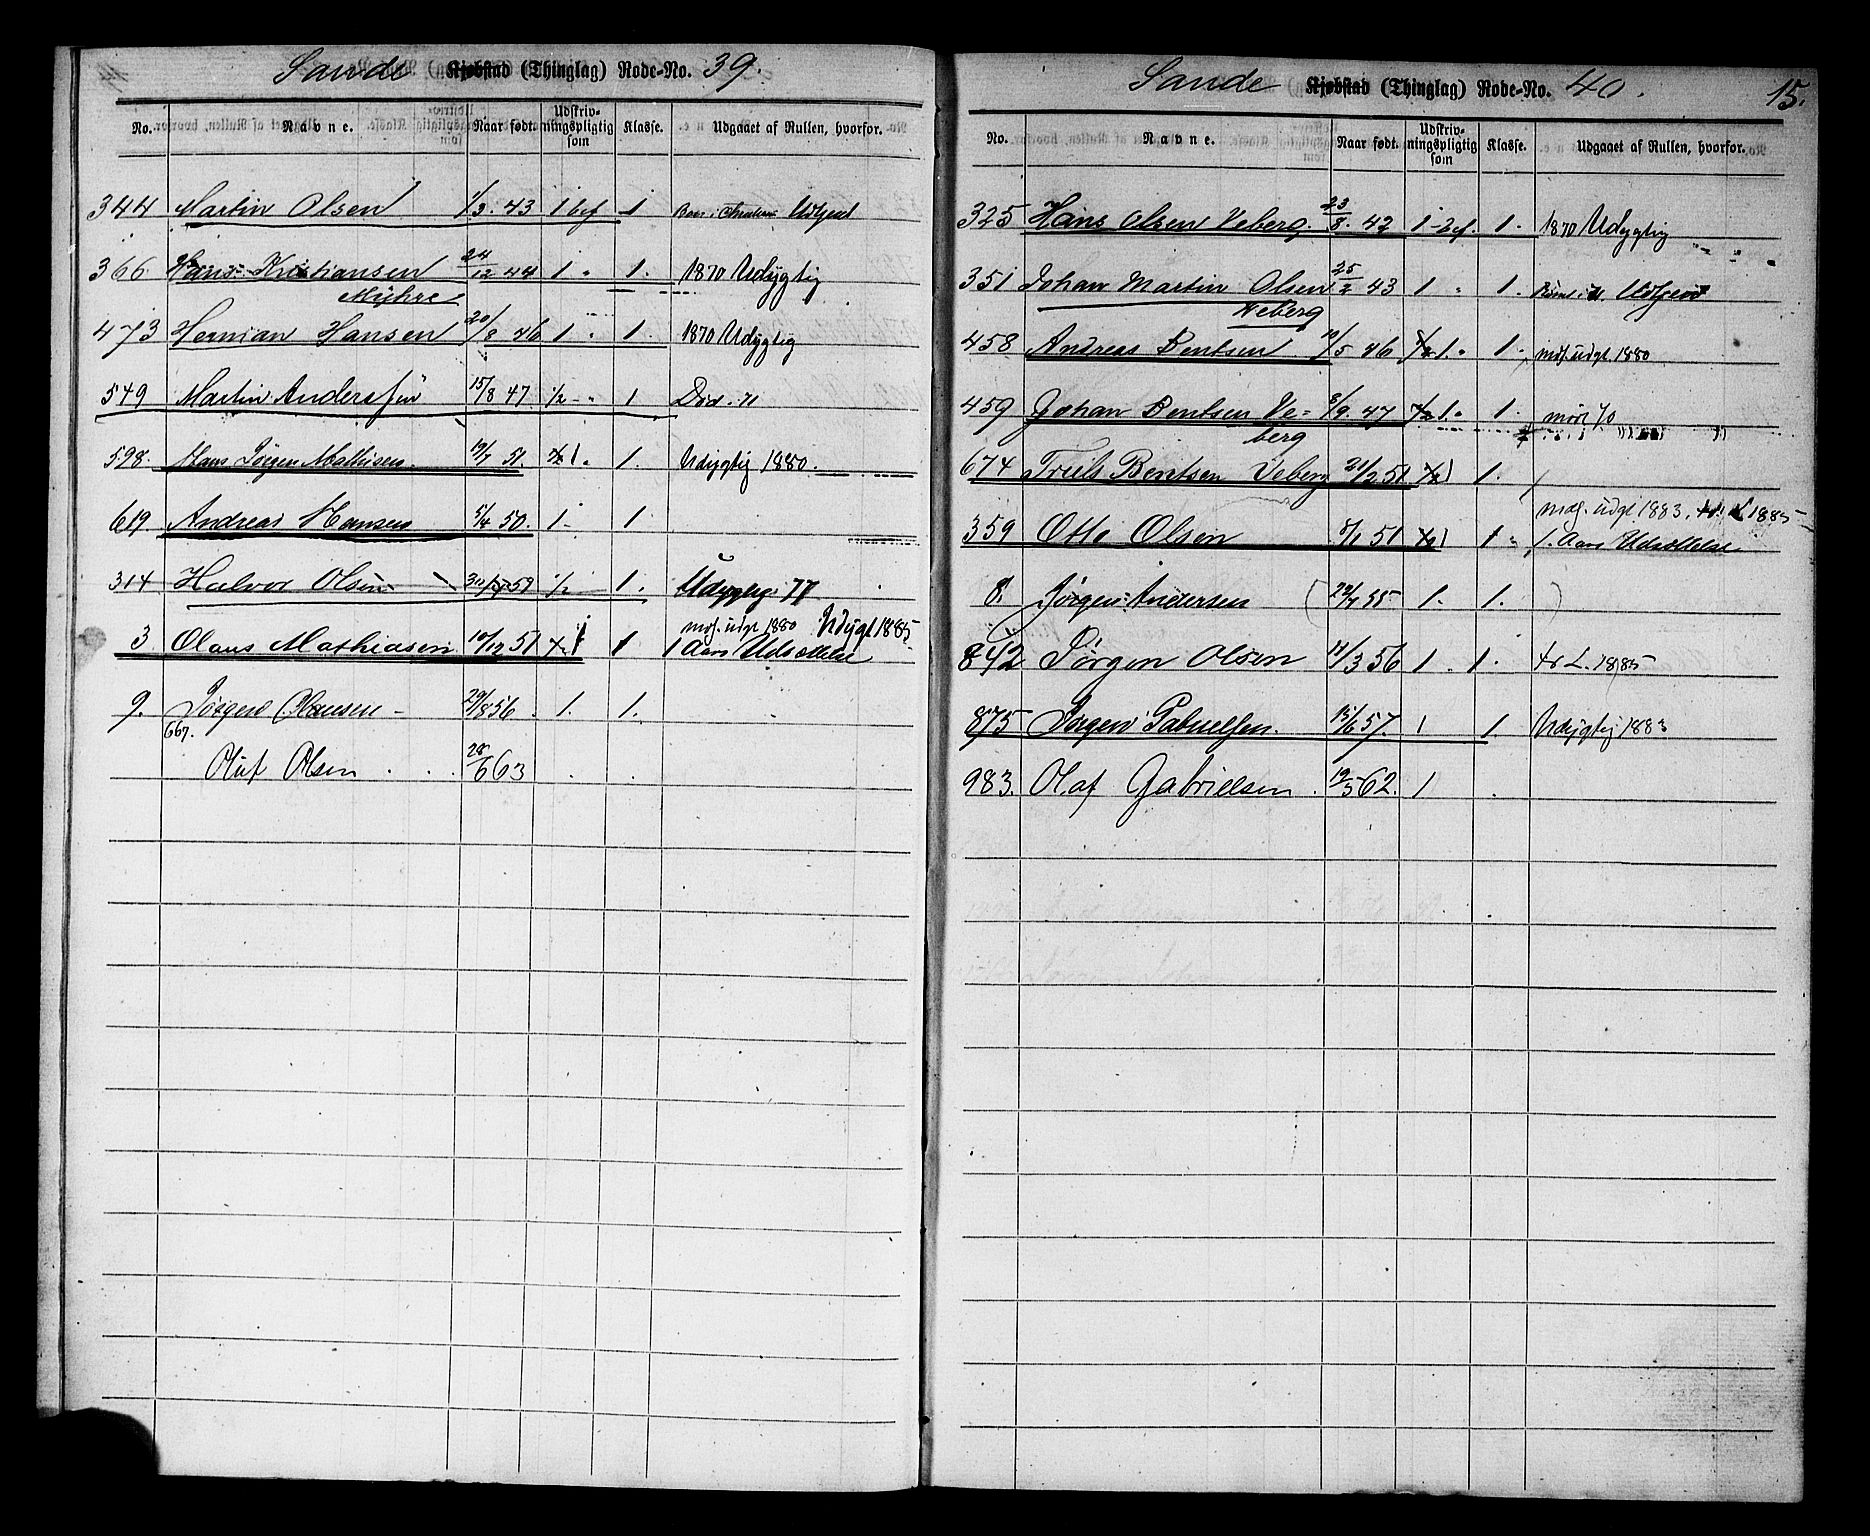 Sande Kjøbstad (Thinglag) Rode-No. 39.
No. Navne. Naar født. Udskrivningspligtig som Klasse. Udgaaet af Rullen, hvorfor.
344 Martin Olsen 1/3 43 1 bef 1 Udtjent
366 Hans Kristiansen 24/12 44 1 " 1. 1870 Udygtig
Myhre
473 Herman Hansen 20/8 46 1 " 1. 1870 Udygtig
549 Martin Andersen 15/8 47 1/2 - " 1 Død
598 Hans Jørgen Mathisen 19/7 51. 1. 1. Udygtig 1880.
619 Andreas Hansen 5/4 50. 1 - 1.
314 Halvor Olsen 59 1/2 1. Udygtig 77
mdf. udgt 1880 Udygt 1885
3 Olaus Mathiasen 10/12 51 1 1 1 Aars Udsættelse
9. Jørgen Hansen - 29/8 56 1. 1.
667.
Oluf Olsen 28/6 63
Sande Kjøbstad (Thinglag) Rode-No. 40. 15.
No. Navne. Naar født. Udskrivningspligtig som Klasse. Udgaaet af Rullen, hvorfor.
325 Hans Olsen Veberg. 23/8. 42 1 - bef. 1. 1870 Udygtig
351 Johan Martin Olsen 25/2 43 1 " 1. Udtjent
Veberg
458 Andreas Bentsen 10/5 46 1. " 1. mdf. udgt 1880
459 Johan Bentsen Ve= 8/9. 47 1. " 1.
berg
674 Truls Bentsen Veberg 21/2 51 1 1.
mdf. udgt 1883, L 1885
359 Otto Olsen 8/1 51 1 1 " 1. Aars Udsættelse
8. Jørgen Andersen 55 1. 1.
842 Jørgen Olsen 17/3 56 1 1. tr L. 1885
875 Jørgen Gabrielsen. 15/6 57. 1 1. Udygtig 1883
983. Olaf Gabrielsen. 19/5 62. 1